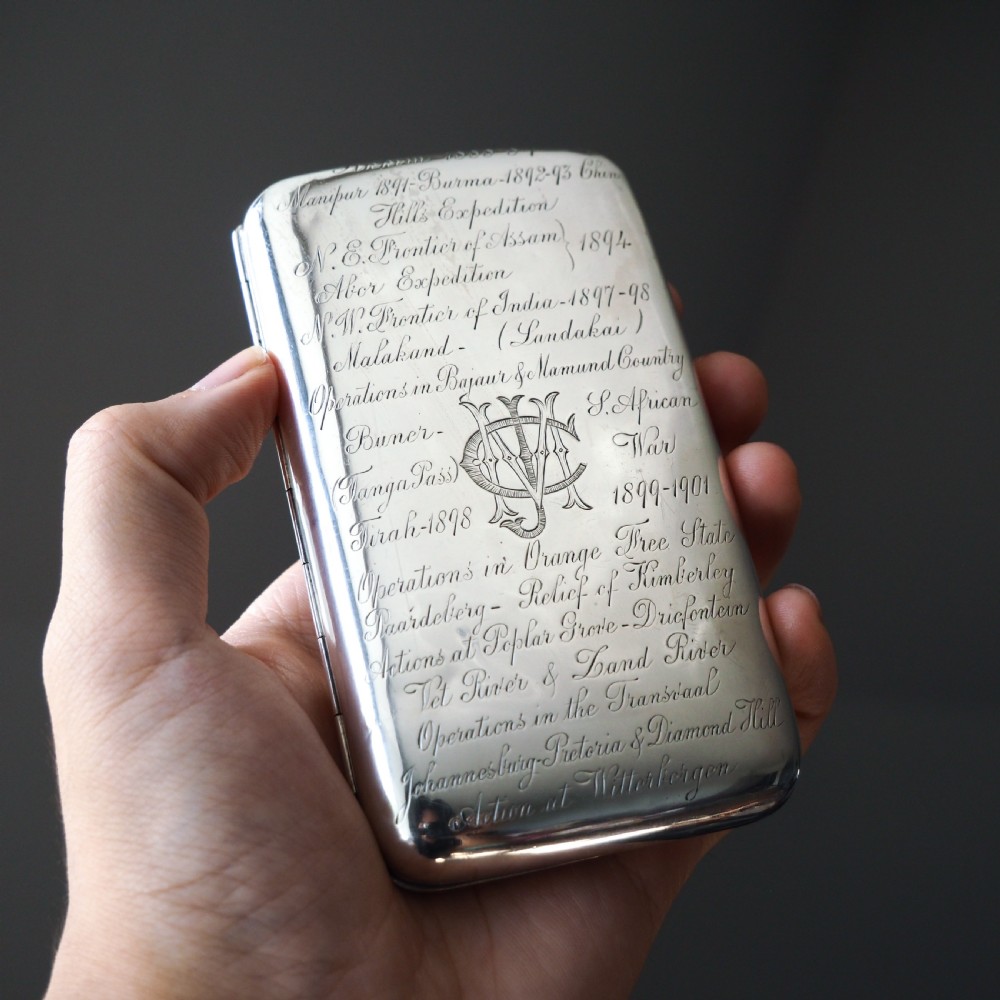 1888-89
Manipur 1891-Burma-1892-93 Chin
Hills Expedition
N.E. Frontier of Assam } 1894
Abor Expedition
N.W. Frontier of India-1897-98
Malakand- (Landakai)
Operations in Bajaur & Mamund Country
Buner-
(Tanga Pass)
Tirah-1898
S. African
War
1899-1901
Operations in Orange Free State
Paardeberg- Relief of Kimberley
Actions at Poplar Grove-Driefontein
Vet River & Zand River
Operations in the Transvaal
Johannesburg-Pretoria & Diamond Hill
Action at Witterbergen